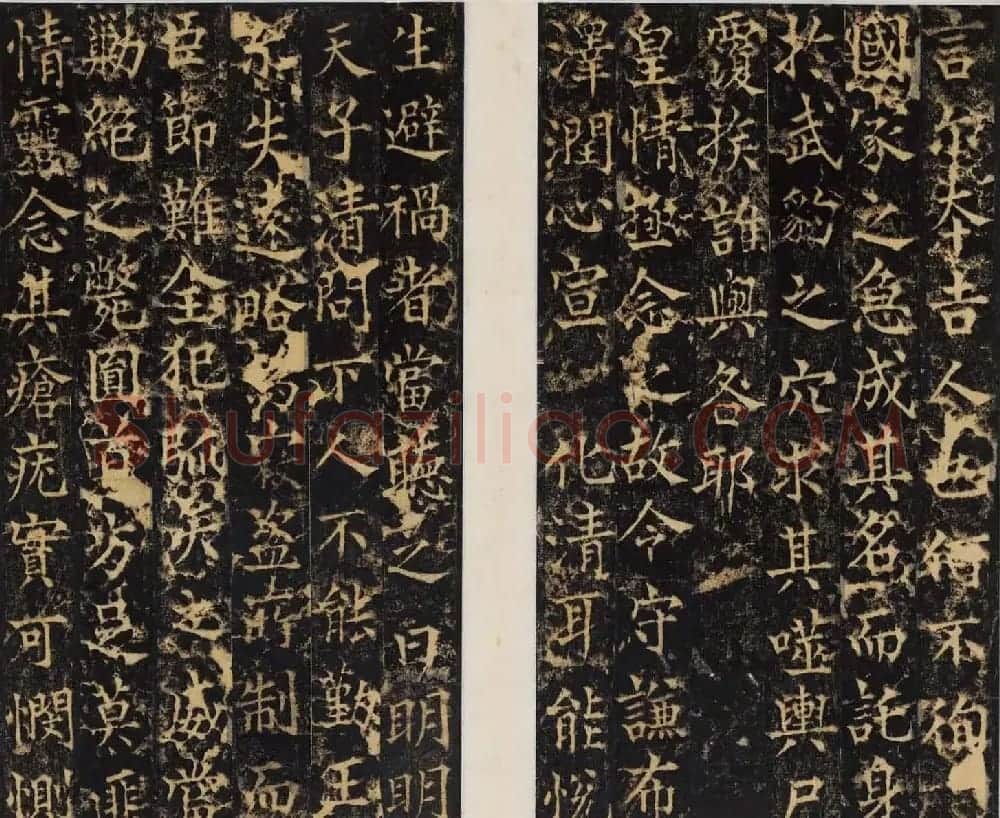 言尔夫吉人也不徇
國家之急成其名而託身
於武豹之穴求其噬輿尸
覆族誰與咎耶
皇情亟念之故令守謙布
澤潤心宣化清耳能悛
生避禍者當聽之曰明明
天子清問下人不能勤王
失遠略盜制而
臣節難全犯之威當
勦絕之斃圓首方足莫匪
情靈念其瘡疣實可憫惻
Shufaziliao.COM